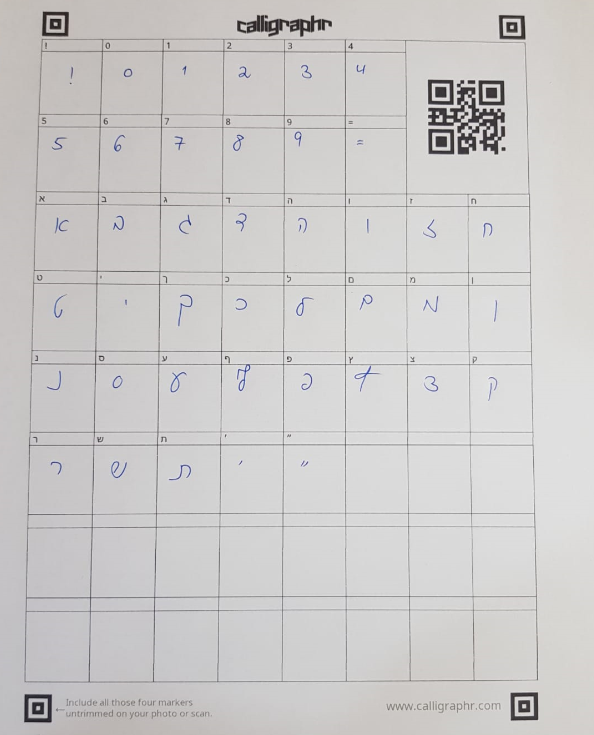 calligraphr
! 0 1 2 3 4
! 0 1 2 3 4
5 6 7 8 9 =
5 6 7 8 9 =
א ב ג ד ה ו ז ח
א ב ג ד ה ו ז ח
ט י ך כ ל ם מ ן
ט י ך כ ל ם מ ן
נ ס ע ף פ ץ צ ק
נ ס ע ף פ ץ צ ק
ר ש ת ׳ ״
ר ש ת ׳ ״
← Include all those four markers
untrimmed on your photo or scan.
www.calligraphr.com